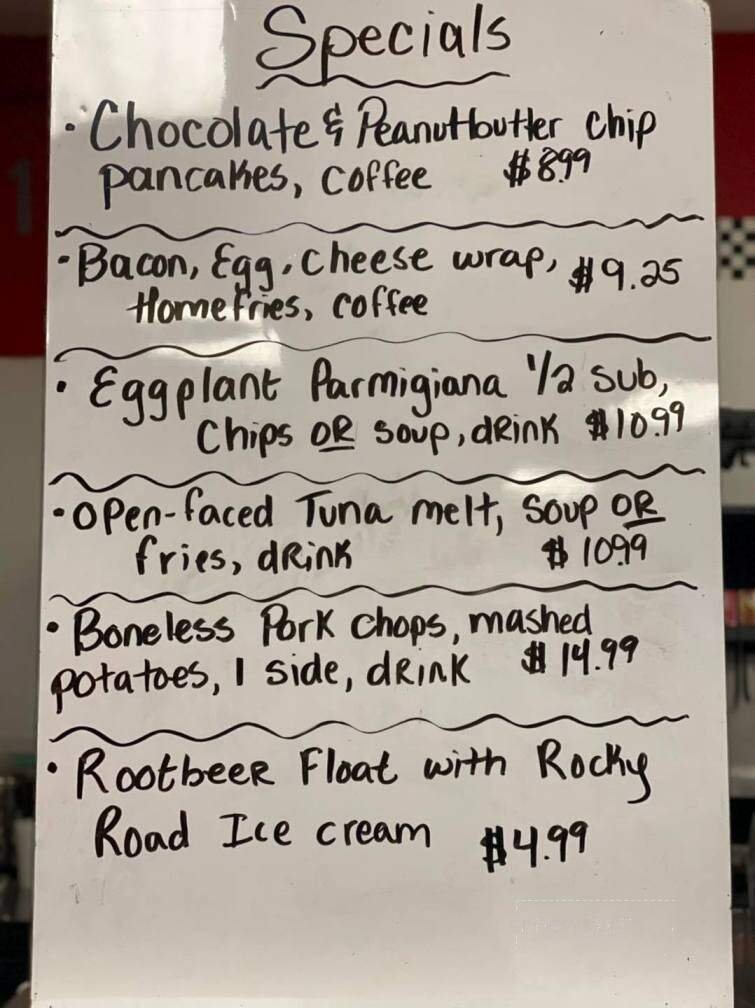 Specials
• Chocolate & Peanutbutter chip
pancakes, coffee $8.99
• Bacon, Egg, cheese wrap, $9.25
Homefries, coffee
• Eggplant Parmigiana 1/2 sub,
chips OR soup, drink $10.99
• Open-faced Tuna melt, soup OR
fries, drink $10.99
• Boneless Pork chops, mashed
potatoes, 1 side, drink $14.99
• Rootbeer Float with Rocky
Road Ice cream $4.99